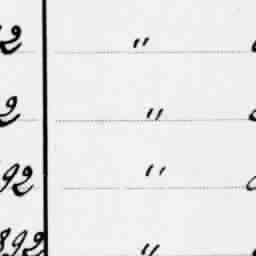 2 "
2 "
92 "
892 "